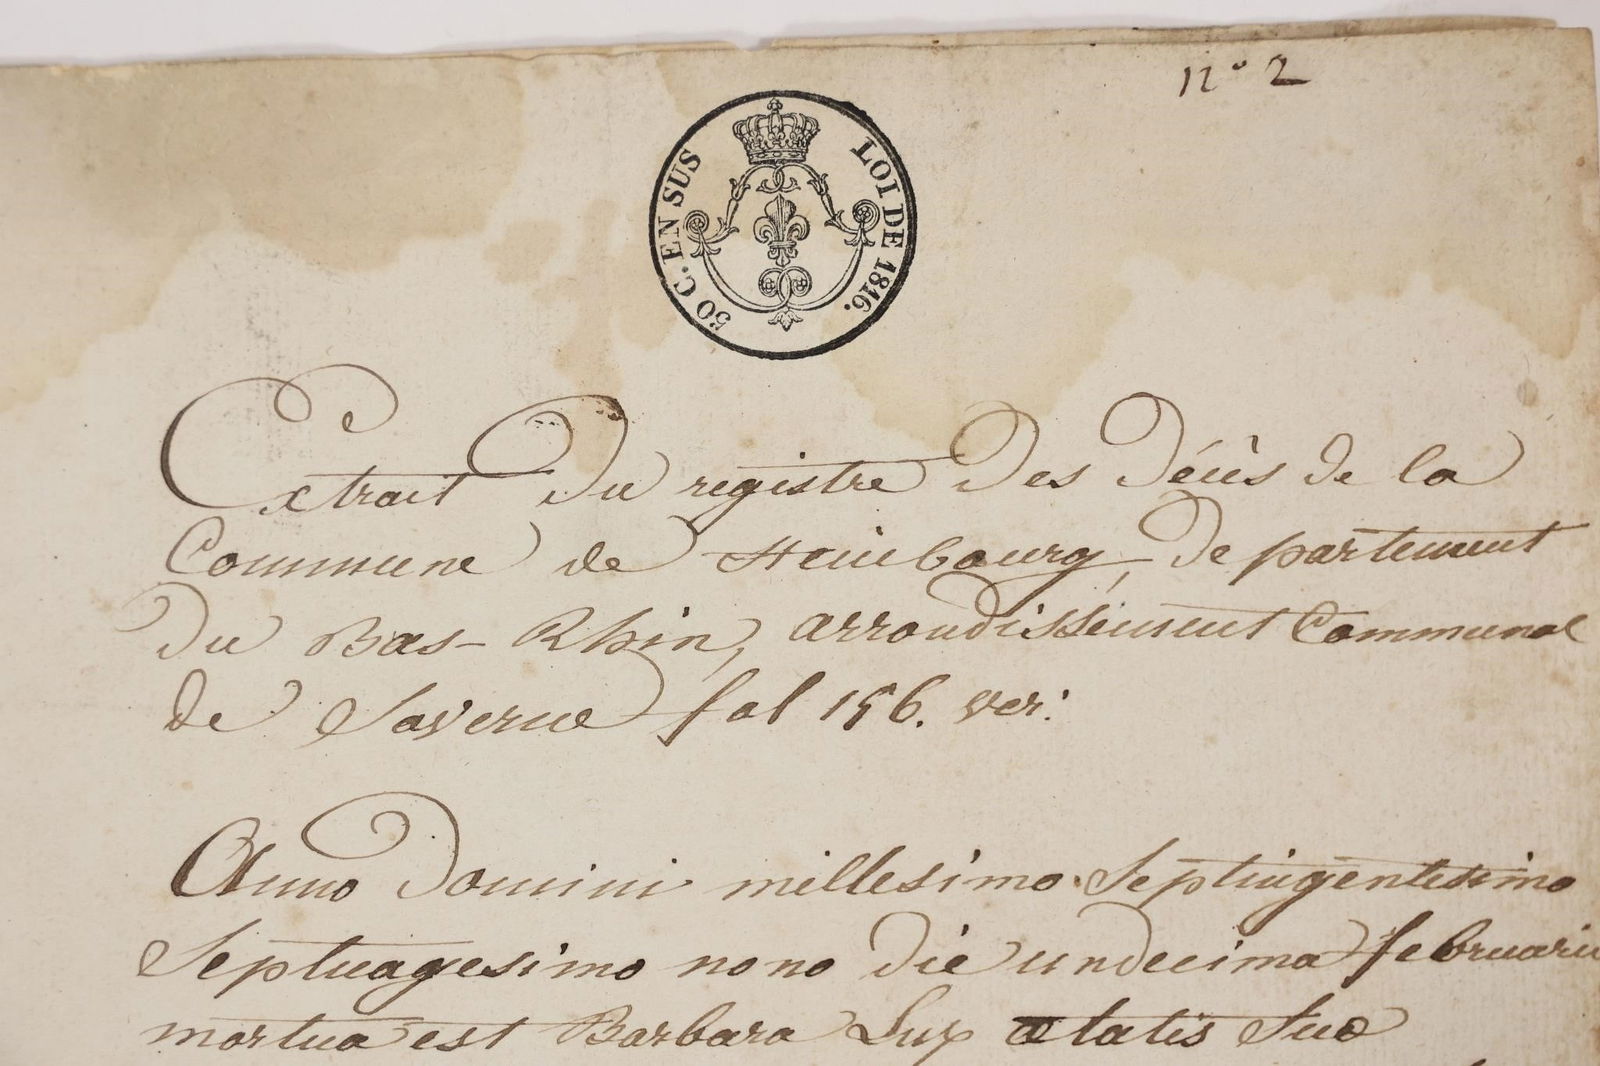 n° 2
50 C. EN SUS
LOI DE 1816.
Extrait du registre des décès de la
Commune de Steinbourg, departement
du Bas-Rhin, arrondissement Communal
de Saverne fol 156. ver:
Anno Domini millesimo Septingentesimo
Septuagesimo nono die undecima februarii
mortua est Barbara Lux ætatis Suæ